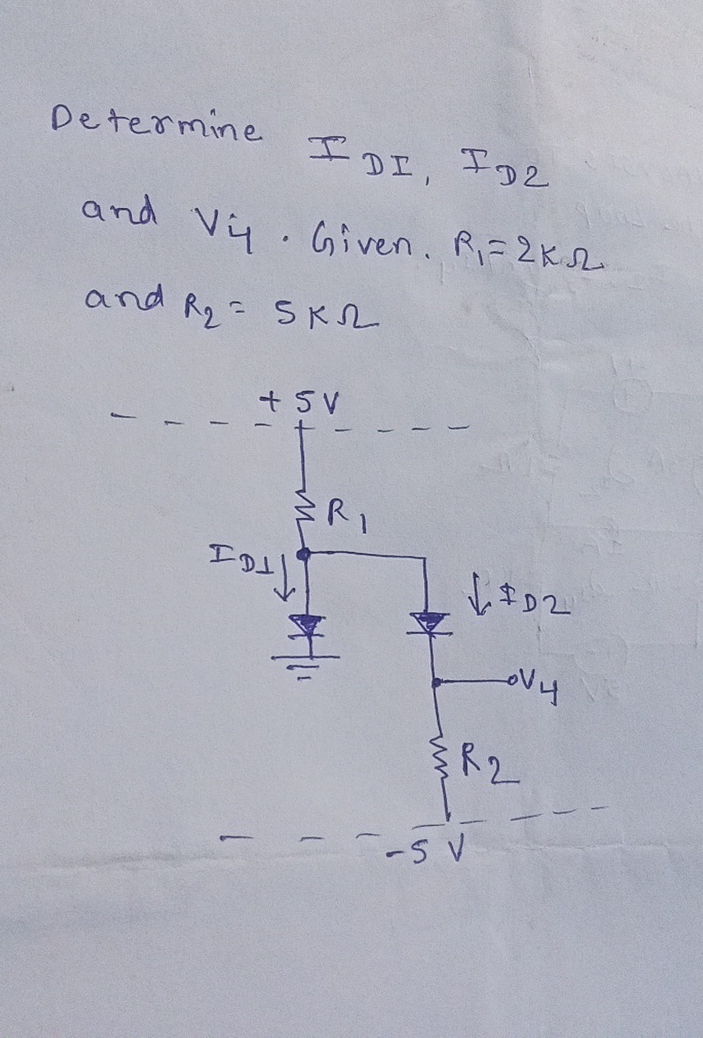 Determine I D1, I D2
and V4. Given. R1 = 2KΩ
and R2 = 5KΩ
+5V
R1
ID1
ID2
V4
R2
-5 V